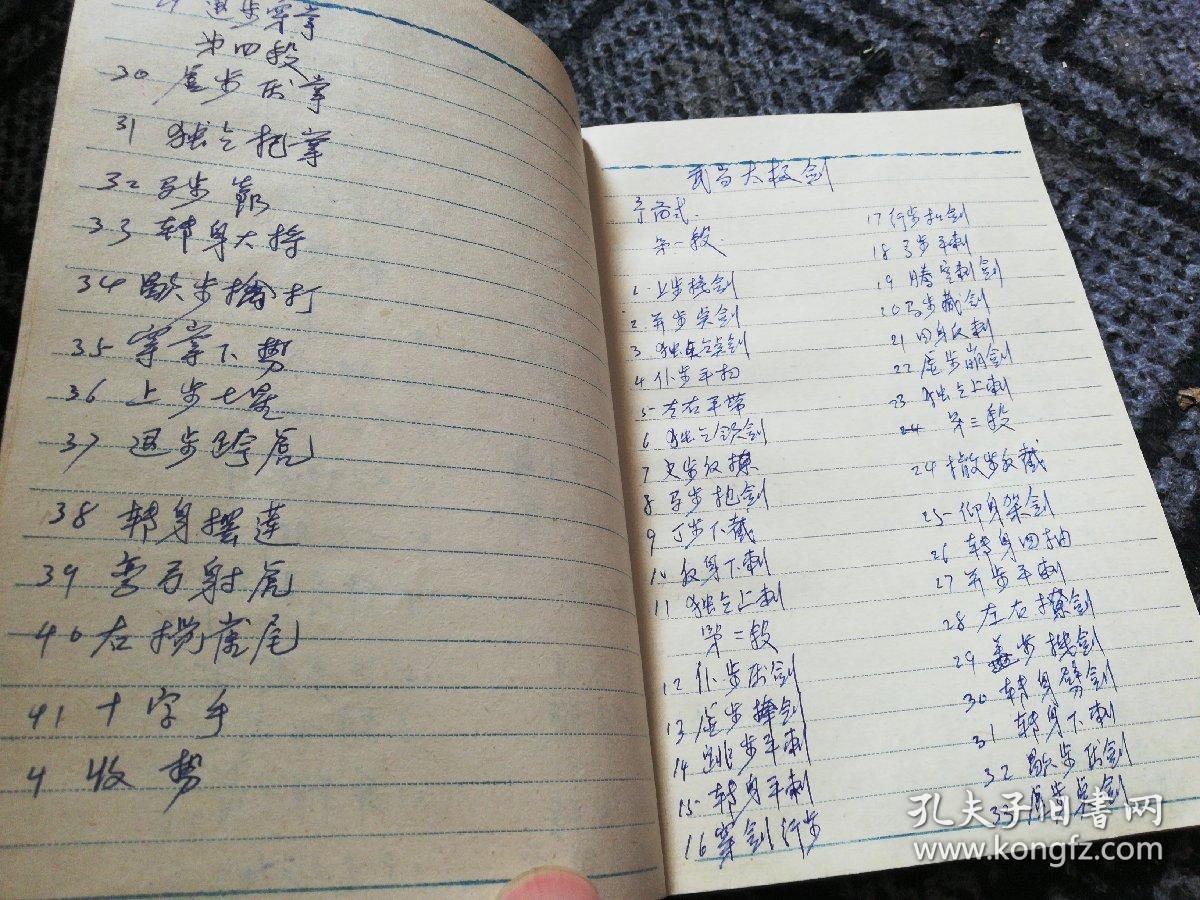 退步穿掌
第四段
30 虚步压掌
31 独立托掌
32 马步靠
33 转身大捋
34 歇步擒打
35 穿掌下势
36 上步七星
37 退步跨虎
38 转身摆莲
39 弯弓射虎
40 左揽雀尾
41 十字手
4 收势
武当太极剑
予备式
第一段
1 上步接剑
2 并步点剑
3 独立
4 仆步平扫
5 左右平带
6 独立 剑
7 反撩
8 马步抱剑
9 丁步下截
10 反身下刺
11 独立上刺
第二段
12 仆步压剑
13 虚步 剑
14 跳步平刺
15 转身平刺
16 穿剑行步
17 行步扣剑
18 弓步平刺
19 腾空刺剑
20 马步藏剑
21 回身反刺
22 虚步崩剑
23 独立上刺
第三段
24 撤步反截
25 仰身架剑
26 转身回抽
27 并步平刺
28 左右撩剑
29 盖步 剑
30 转身劈剑
31 转身下刺
32 歇步压剑
33 虚步点剑
孔夫子旧书网
www.kongfz.com